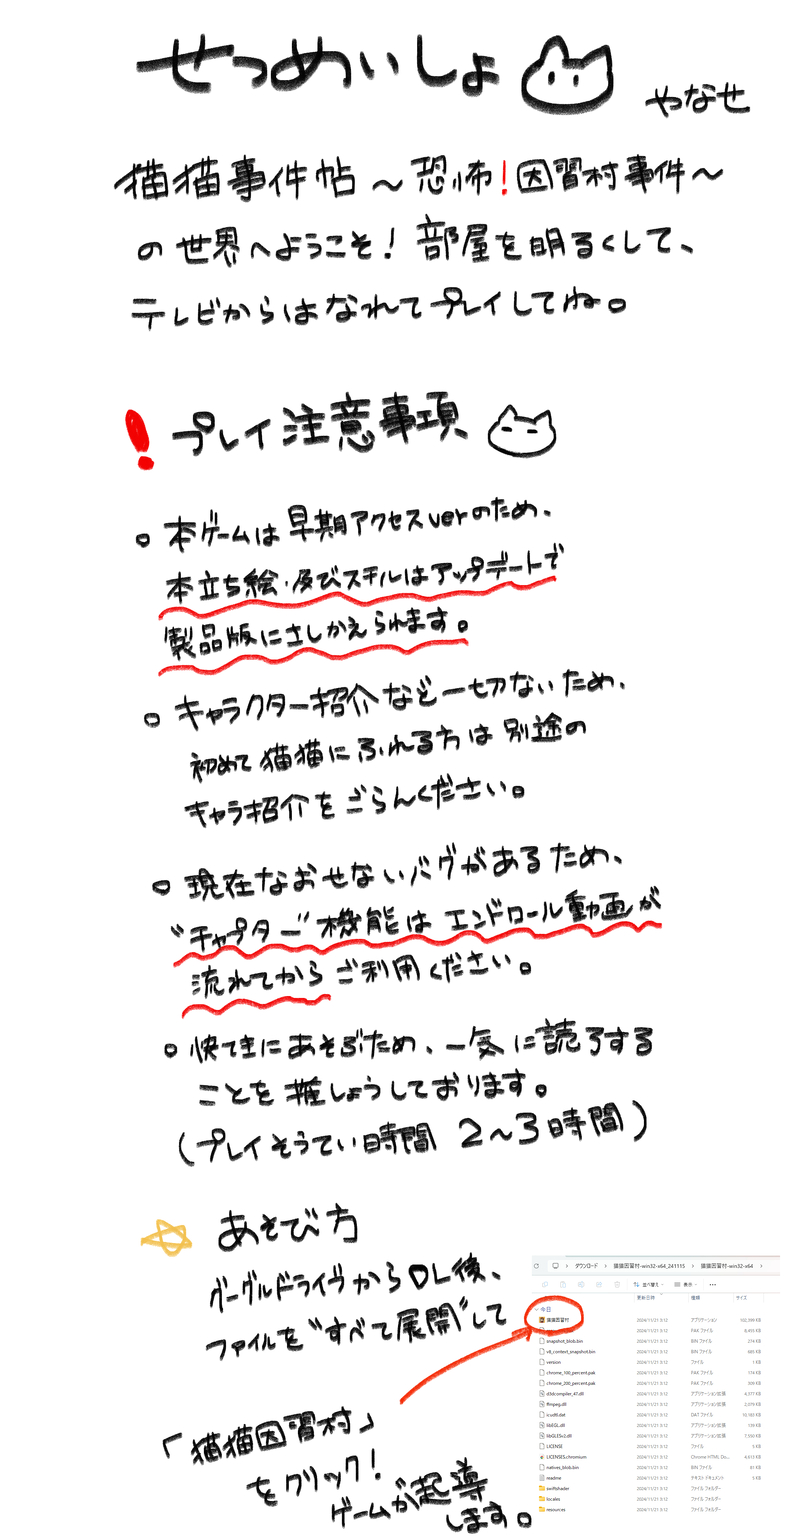 せつめいしょ
やなせ
猫猫事件帖～恐怖!因習村事件～
の世界へようこそ! 部屋を明るくして、
テレビからはなれてプレイしてね。
! プレイ注意事項
○ 本ゲームは早期アクセスverのため、
本立ち絵・及びスチルはアップデートで
製品版にさしかえられます。
○ キャラクター紹介など一切ないため、
初めて猫猫にふれる方は別途の
キャラ紹介をごらんください。
○ 現在なおせないバグがあるため、
"チャプター"機能はエンドロール動画が
流れてからご利用ください。
○ 快てきにあそぶため、一気に読了する
ことを推しょうしております。
(プレイそうてい時間 2～3時間)
☆ あそび方
グーグルドライヴからDL後、
ファイルを"すべて展開"して
「猫猫因習村」
をクリック!
ゲームが起導
します。
ダウンロード > 猫猫因習村-win32-x64_241115 > 猫猫因習村-win32-x64 >
並べ替え 表示 ...
更新日時 種類 サイズ
今日
猫猫因習村 2024/11/21 3:12 アプリケーション 102,399 KB
2024/11/21 3:12 PAK ファイル 8,455 KB
snapshot_blob.bin 2024/11/21 3:12 BIN ファイル 274 KB
v8_context_snapshot.bin 2024/11/21 3:12 BIN ファイル 685 KB
version 2024/11/21 3:12 ファイル 1 KB
chrome_100_percent.pak 2024/11/21 3:12 PAK ファイル 174 KB
chrome_200_percent.pak 2024/11/21 3:12 PAK ファイル 309 KB
d3dcompiler_47.dll 2024/11/21 3:12 アプリケーション拡張 4,377 KB
ffmpeg.dll 2024/11/21 3:12 アプリケーション拡張 2,079 KB
icudtl.dat 2024/11/21 3:12 DAT ファイル 10,183 KB
libEGL.dll 2024/11/21 3:12 アプリケーション拡張 139 KB
libGLESv2.dll 2024/11/21 3:12 アプリケーション拡張 7,550 KB
LICENSE 2024/11/21 3:12 ファイル 5 KB
LICENSES.chromium 2024/11/21 3:12 Chrome HTML Do... 4,613 KB
natives_blob.bin 2024/11/21 3:12 BIN ファイル 81 KB
readme 2024/11/21 3:12 テキスト ドキュメント 5 KB
swiftshader 2024/11/21 3:12 ファイル フォルダー
locales 2024/11/21 3:12 ファイル フォルダー
resources 2024/11/21 3:12 ファイル フォルダー